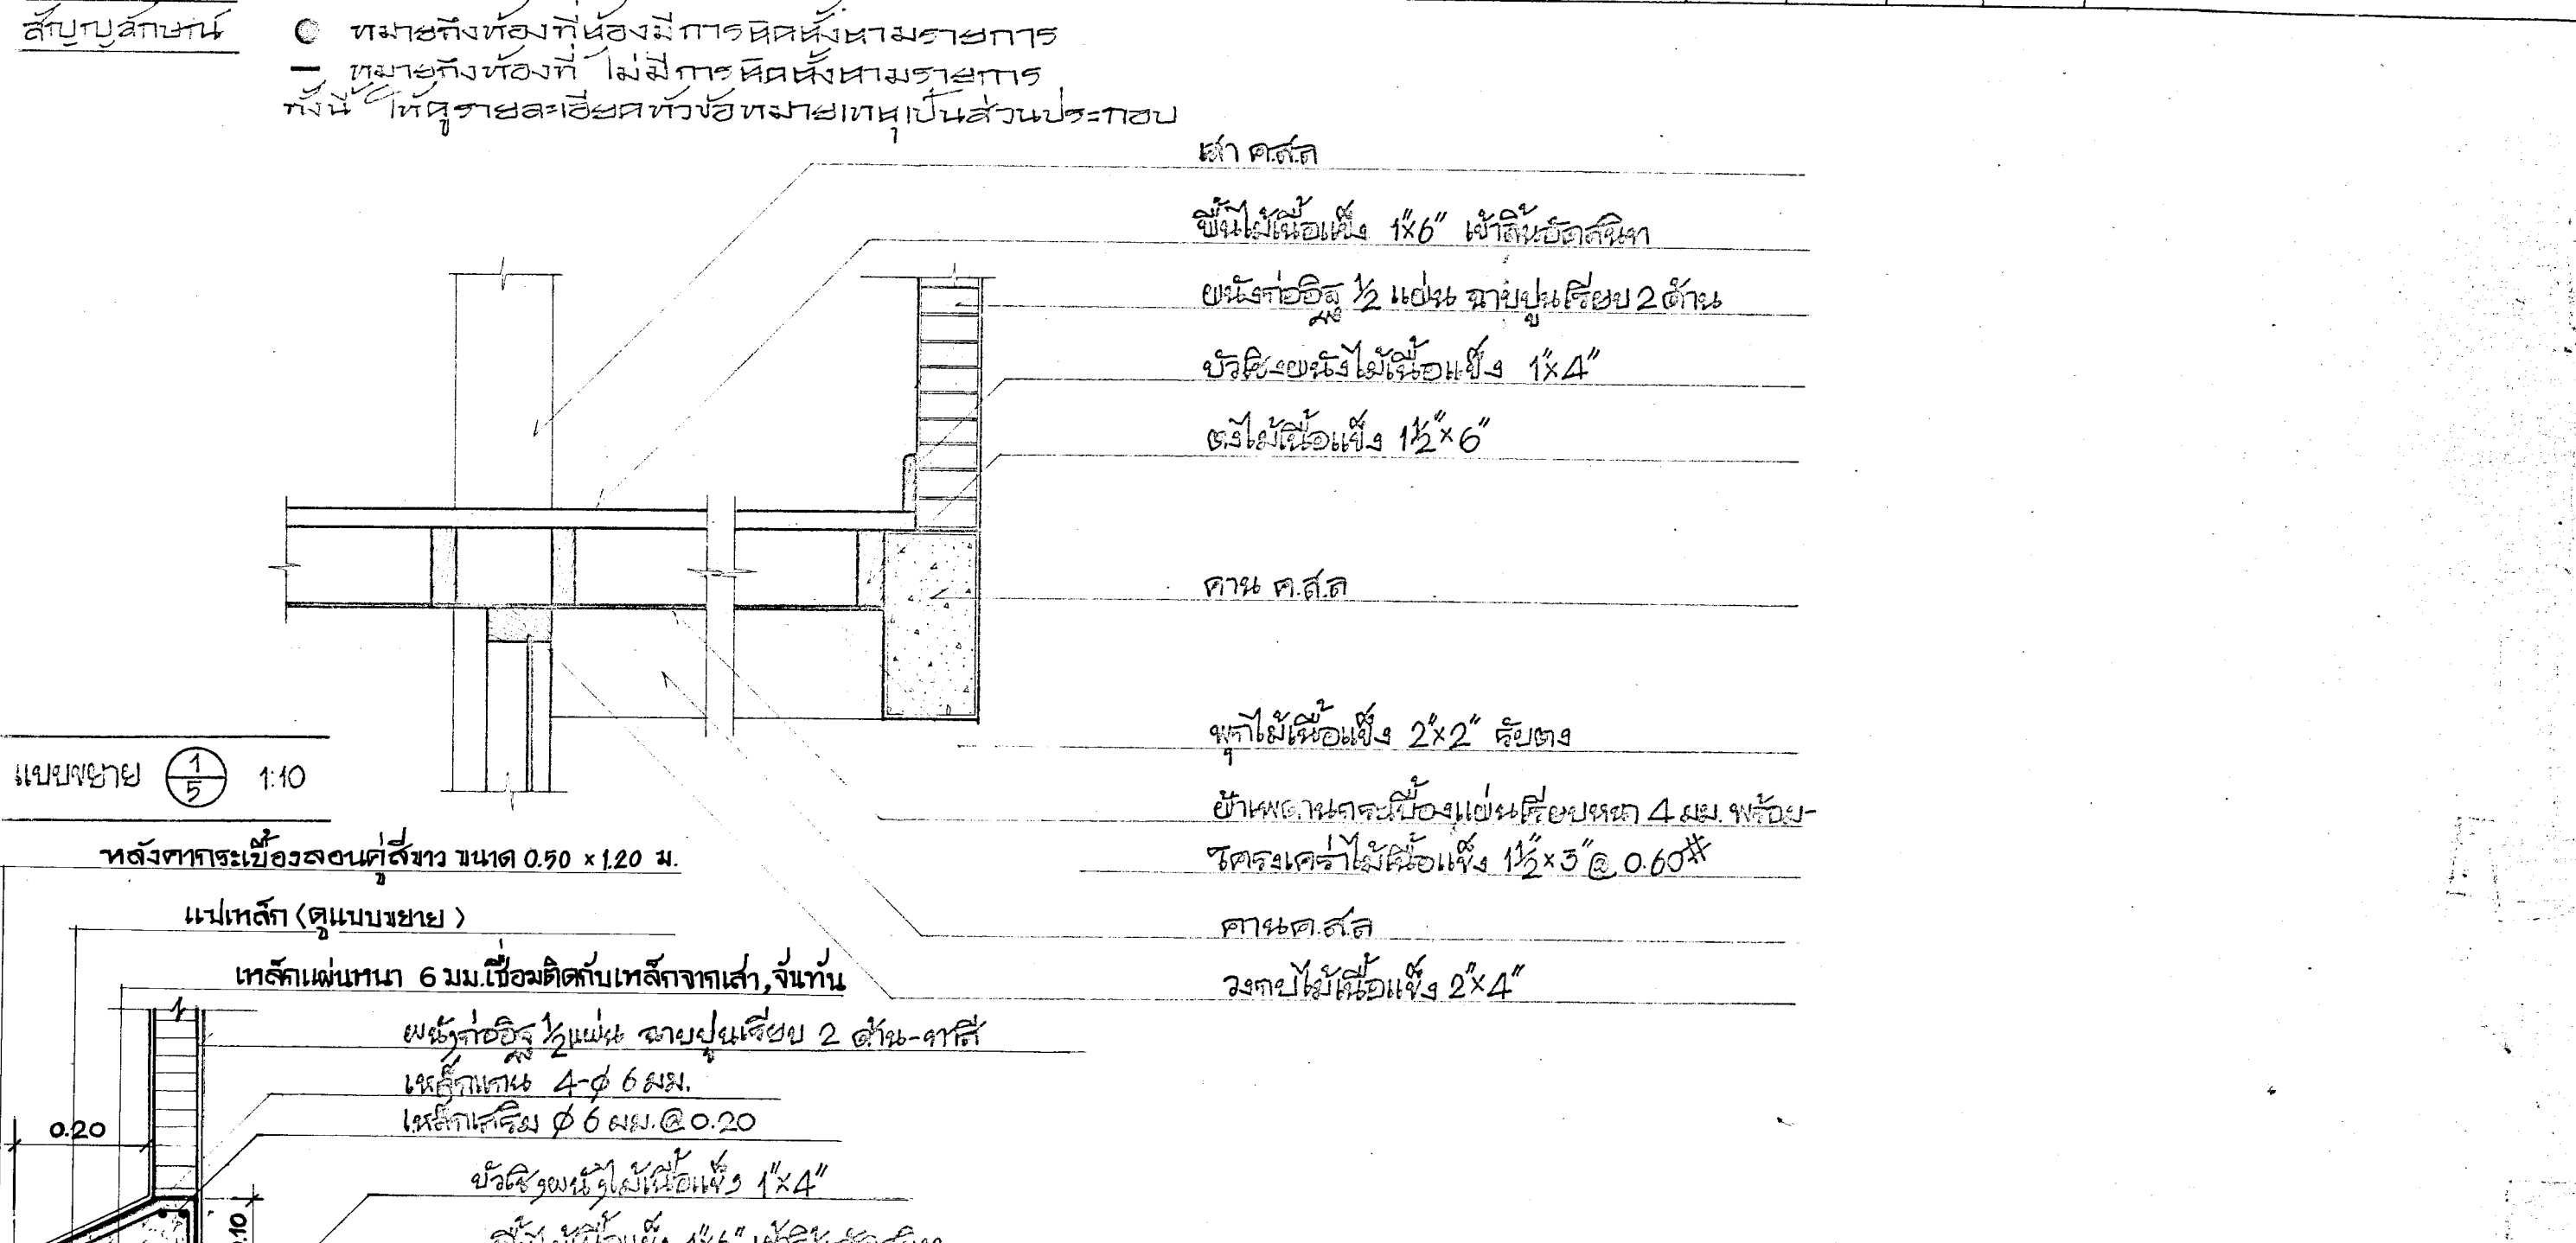 สัญญลักษณ์ ● หมายถึงห้องที่ต้องมีการติดตั้งตามรายการ
— หมายถึงห้องที่ไม่มีการติดตั้งตามรายการ
ทั้งนี้ ให้ดูรายละเอียดหัวข้อหมายเหตุเป็นส่วนประกอบ
เสา ค.ส.ล
พื้นไม้เนื้อแข็ง 1"x6" เข้าลิ้นอัดสนิท
ผนังก่ออิฐ 1/2 แผ่น ฉาบปูนเรียบ 2 ด้าน
บัวเชิงผนังไม้เนื้อแข็ง 1"x4"
ตงไม้เนื้อแข็ง 1½"x6"
คาน ค.ส.ล
พุกไม้เนื้อแข็ง 2"x2" รับตง
ฝ้าเพดานกระเบื้องแผ่นเรียบหนา 4 มม. พร้อม-
โครงเคร่าไม้เนื้อแข็ง 1½"x3"@ 0.60#
คานค.ส.ล
วงกบไม้เนื้อแข็ง 2"x4"
แบบขยาย 1/5 1:10
หลังคากระเบื้องลอนคู่สีขาว ขนาด 0.50 x 1.20 ม.
แปเหล็ก (ดูแบบขยาย)
เหล็กแผ่นหนา 6 มม.เชื่อมติดกับเหล็กจากเสา,จันทัน
ผนังก่ออิฐ 1/2 แผ่น ฉาบปูนเรียบ 2 ด้าน-ทาสี
เหล็กแกน 4-ϕ 6 มม.
เหล็กเสริม ϕ 6 มม.@0.20
0.20
บัวเชิงผนังไม้เนื้อแข็ง 1"x4"
.10